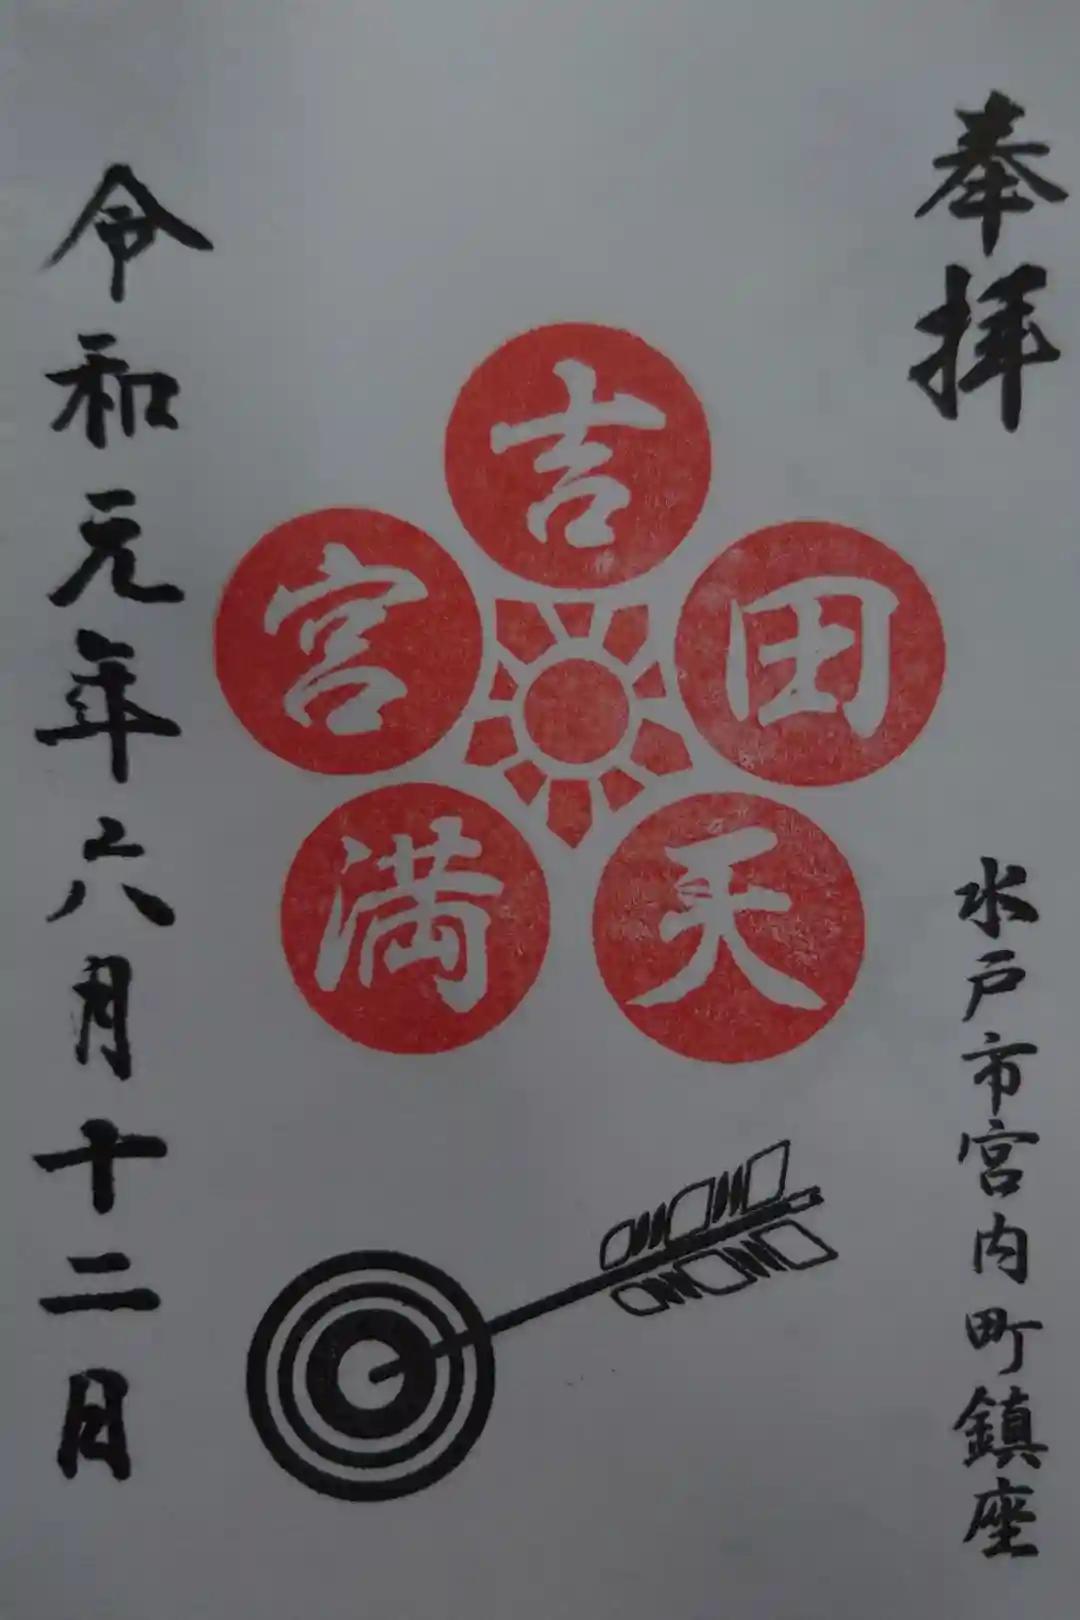 奉拝
水戸市宮内町鎮座
吉田天満宮
令和元年六月十二日